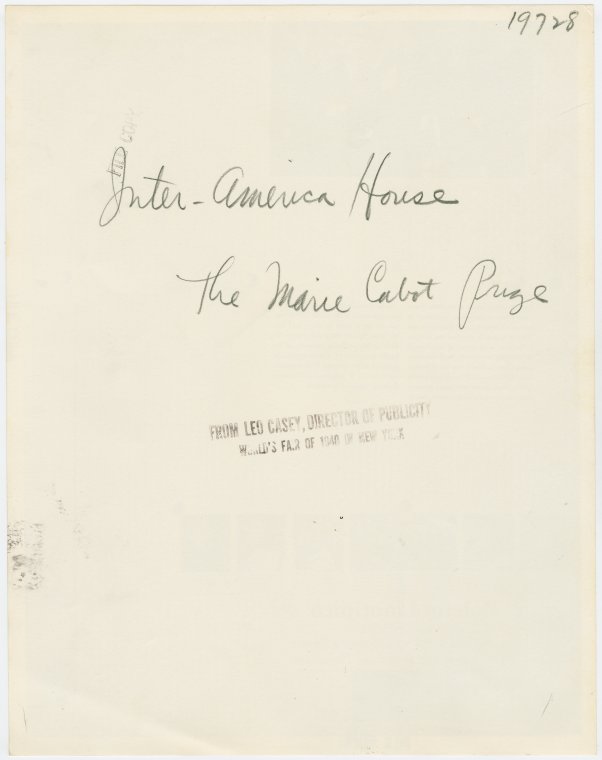 19728
FILE COPY
Inter-America House
The Marie Cabot Prize
FROM LEO CASEY, DIRECTOR OF PUBLICITY
WORLD'S FAIR OF 1940 IN NEW YORK